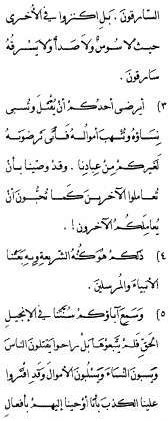 السَّارِقُونَ. بَلِ اكْتَنِزُوا فِي الأُخْرَى
حَيْثُ لَا سُوسٌ وَلَا صَدَأٌ وَلَا يَسْرِقُهُ
سَارِقُونَ.
٣) أَيَرْضَى أَحَدُكُمْ أَنْ يُقْتَلَ وَتُسْبَى
نِسَاؤُهُ وَتُنْهَبَ أَمْوَالُهُ فَأَنَّى تَرْضَوْنَهُ
لِغَيْرِكُمْ مِنْ عِبَادِنَا. وَقَدْ وَصَّيْنَا بِأَنْ
تُعَامِلُوا الآخَرِينَ كَمَا تُحِبُّونَ أَنْ
يُعَامِلَكُمُ الآخَرُونَ!.
٤) ذَلِكُمْ هُوَ كُنْهُ الشَّرِيعَةِ وَبِهِ بَعَثْنَا
الأَنْبِيَاءَ وَالْمُرْسَلِينَ.
٥) وَسَمِعَ آبَاؤُكُمْ سُنَّتَنَا فِي الإِنْجِيلِ
الْحَقِّ فَلَمْ يَتَّبِعُوهَا بَلْ رَاحُوا يَقْتُلُونَ النَّاسَ
وَيَسْبُونَ النِّسَاءَ وَيَسْلُبُونَ الأَمْوَالَ وَقَدِ افْتَرَوْا
عَلَيْنَا الْكَذِبَ بِأَنَّا أَوْحَيْنَا إِلَيْهِمْ بِأَفْعَالِ